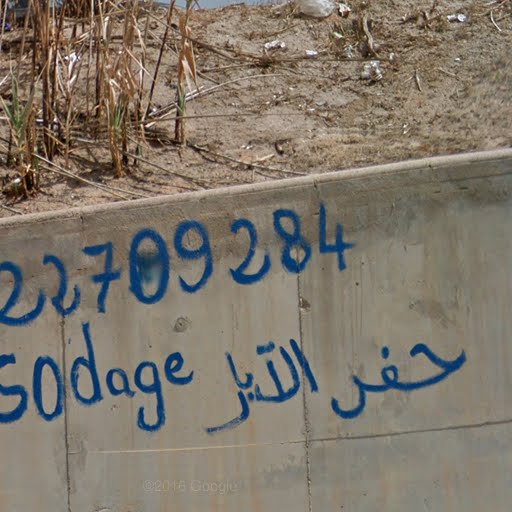 22709284
sodage حفر الآبار
©2016 Google